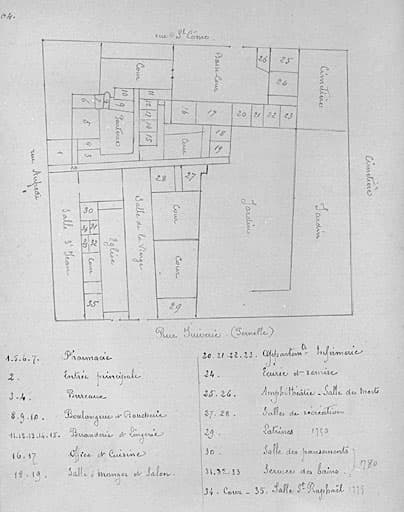 rue St Côme
Cour
Basse-Cour
26
25
24
Cimetière
Cimetière
10
11
9
12
13
14
15
16
17
20
21
22
23
6
7
8
5
4
3
1
2
Cour
18
19
rue Aufredi
28
27
Salle St Jean
30
Cour
35
Eglise
Salle de la Vierge
Cour
Cour
29
Jardin
Jardin
Rue Juiverie. (Fernelle)
1.5.6.7. Pharmacie
2. Entrée principale
3-4. Bureaux
8.9.10. Boulangerie et Boucherie
11.12.13.14.15. Buanderie et Lingerie
16-17 Office et Cuisine
18-19. Salle à manger et Salon.
20.21.22.23. Appartemts Infirmerie
24. Ecurie et remise
25.26. Amphithéâtre - Salle des morts
27-28. Salles de récréation
29. Latrines
30. Salle des pansements
31.32.33 Service des bains. 1780
34. Cour - 35. Salle St Raphaël